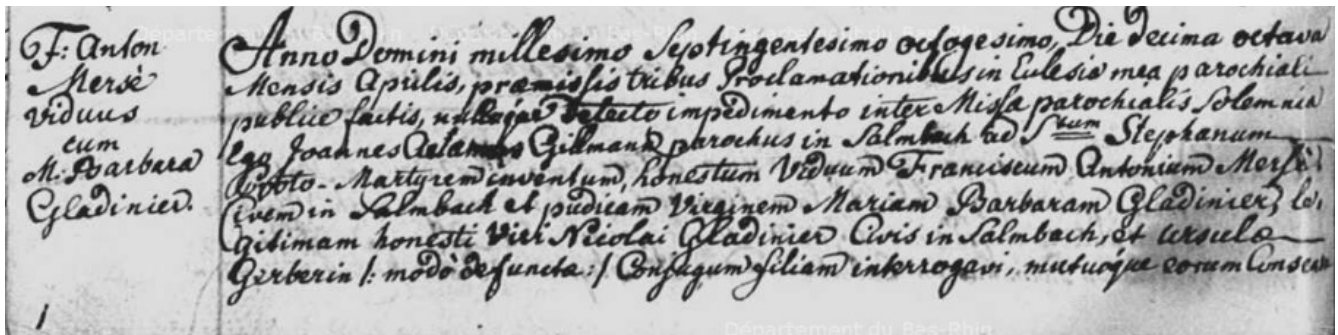 F: Anton
Mersè
viduus
cum
M: Barbara
Gladinier.
Anno Domini millesimo Septingentesimo octogesimo, Die decima octava
Mensis Aprilis, præmissis tribus Proclamationibus in Eclesia mea parochiali
publice factis, nulloque Detecto impedimento inter Missæ parochialis solemnia
Ego Joannes Gillmann parochus in Salmbach ad Stum Stephanum
Proto-Martyrem inventum, honestum Viduum Franciscum Antonium Mersè
Civem in Salmbach et pudicam Virginem Mariam Barbaram Gladinier, le,
gitimam honesti Viri Nicolai Gladinier Civis in Salmbach, et Ursulæ
Gerberin /: modò defunctæ :/ Conjugum filiam interrogavi, mutuoque eorum Consen
Département du Bas-Rhin
Département du Bas-Rhin